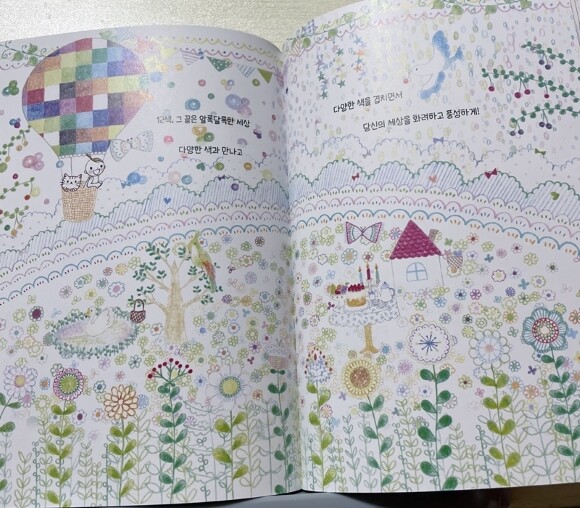 12색, 그 끝은 알록달록한 세상
다양한 색과 만나고
다양한 색을 겹치면서
당신의 세상을 화려하고 풍성하게!